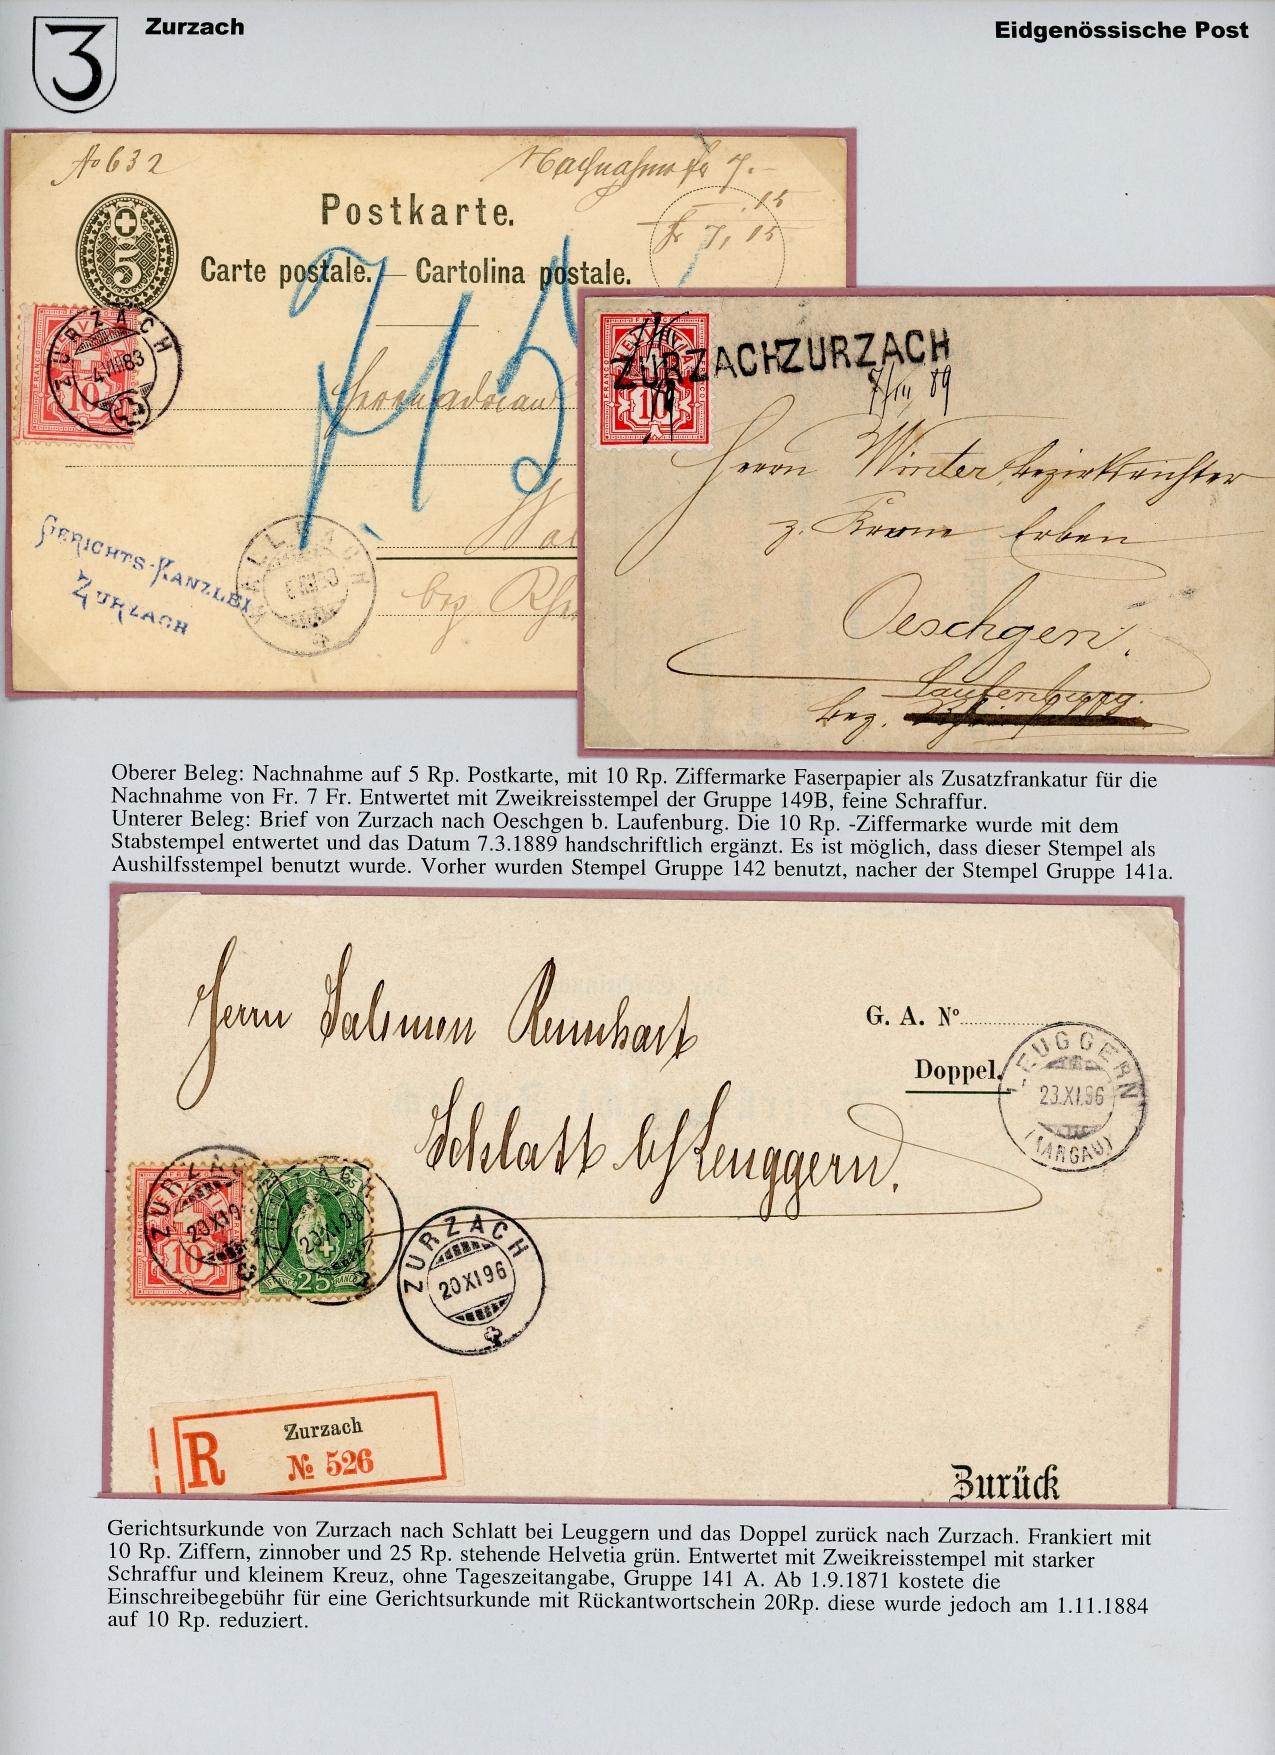 3
Zurzach
Eidgenössische Post
No 632
Nachnahme fr 7.-
.15
fr 7,15
Postkarte.
Carte postale. — Cartolina postale.
5
7.15
ZURZACH
4 VIII 83
10
Herrn Adrian
GERICHTS-KANZLEI
ZURZACH
bez. Rhe
ZURZACH ZURZACH
7/III 89
10
Herrn Winter, Bezirksrichter
z. Krone Erben
Oeschgen.
Laufenburg.
bez.
Oberer Beleg: Nachnahme auf 5 Rp. Postkarte, mit 10 Rp. Ziffermarke Faserpapier als Zusatzfrankatur für die
Nachnahme von Fr. 7 Fr. Entwertet mit Zweikreisstempel der Gruppe 149B, feine Schraffur.
Unterer Beleg: Brief von Zurzach nach Oeschgen b. Laufenburg. Die 10 Rp. -Ziffermarke wurde mit dem
Stabstempel entwertet und das Datum 7.3.1889 handschriftlich ergänzt. Es ist möglich, dass dieser Stempel als
Aushilfsstempel benutzt wurde. Vorher wurden Stempel Gruppe 142 benutzt, nacher der Stempel Gruppe 141a.
Herrn Salomon Rennhart
Schlatt b/Leuggern.
G. A. No
Doppel.
LEUGGERN
23.XI.96
(AARGAU)
ZURZACH
10
FRANCO 25 FRANCO
ZURZACH
20 XI 96
R
Zurzach
No 526
Zurück
Gerichtsurkunde von Zurzach nach Schlatt bei Leuggern und das Doppel zurück nach Zurzach. Frankiert mit
10 Rp. Ziffern, zinnober und 25 Rp. stehende Helvetia grün. Entwertet mit Zweikreisstempel mit starker
Schraffur und kleinem Kreuz, ohne Tageszeitangabe, Gruppe 141 A. Ab 1.9.1871 kostete die
Einschreibegebühr für eine Gerichtsurkunde mit Rückantwortschein 20Rp. diese wurde jedoch am 1.11.1884
auf 10 Rp. reduziert.